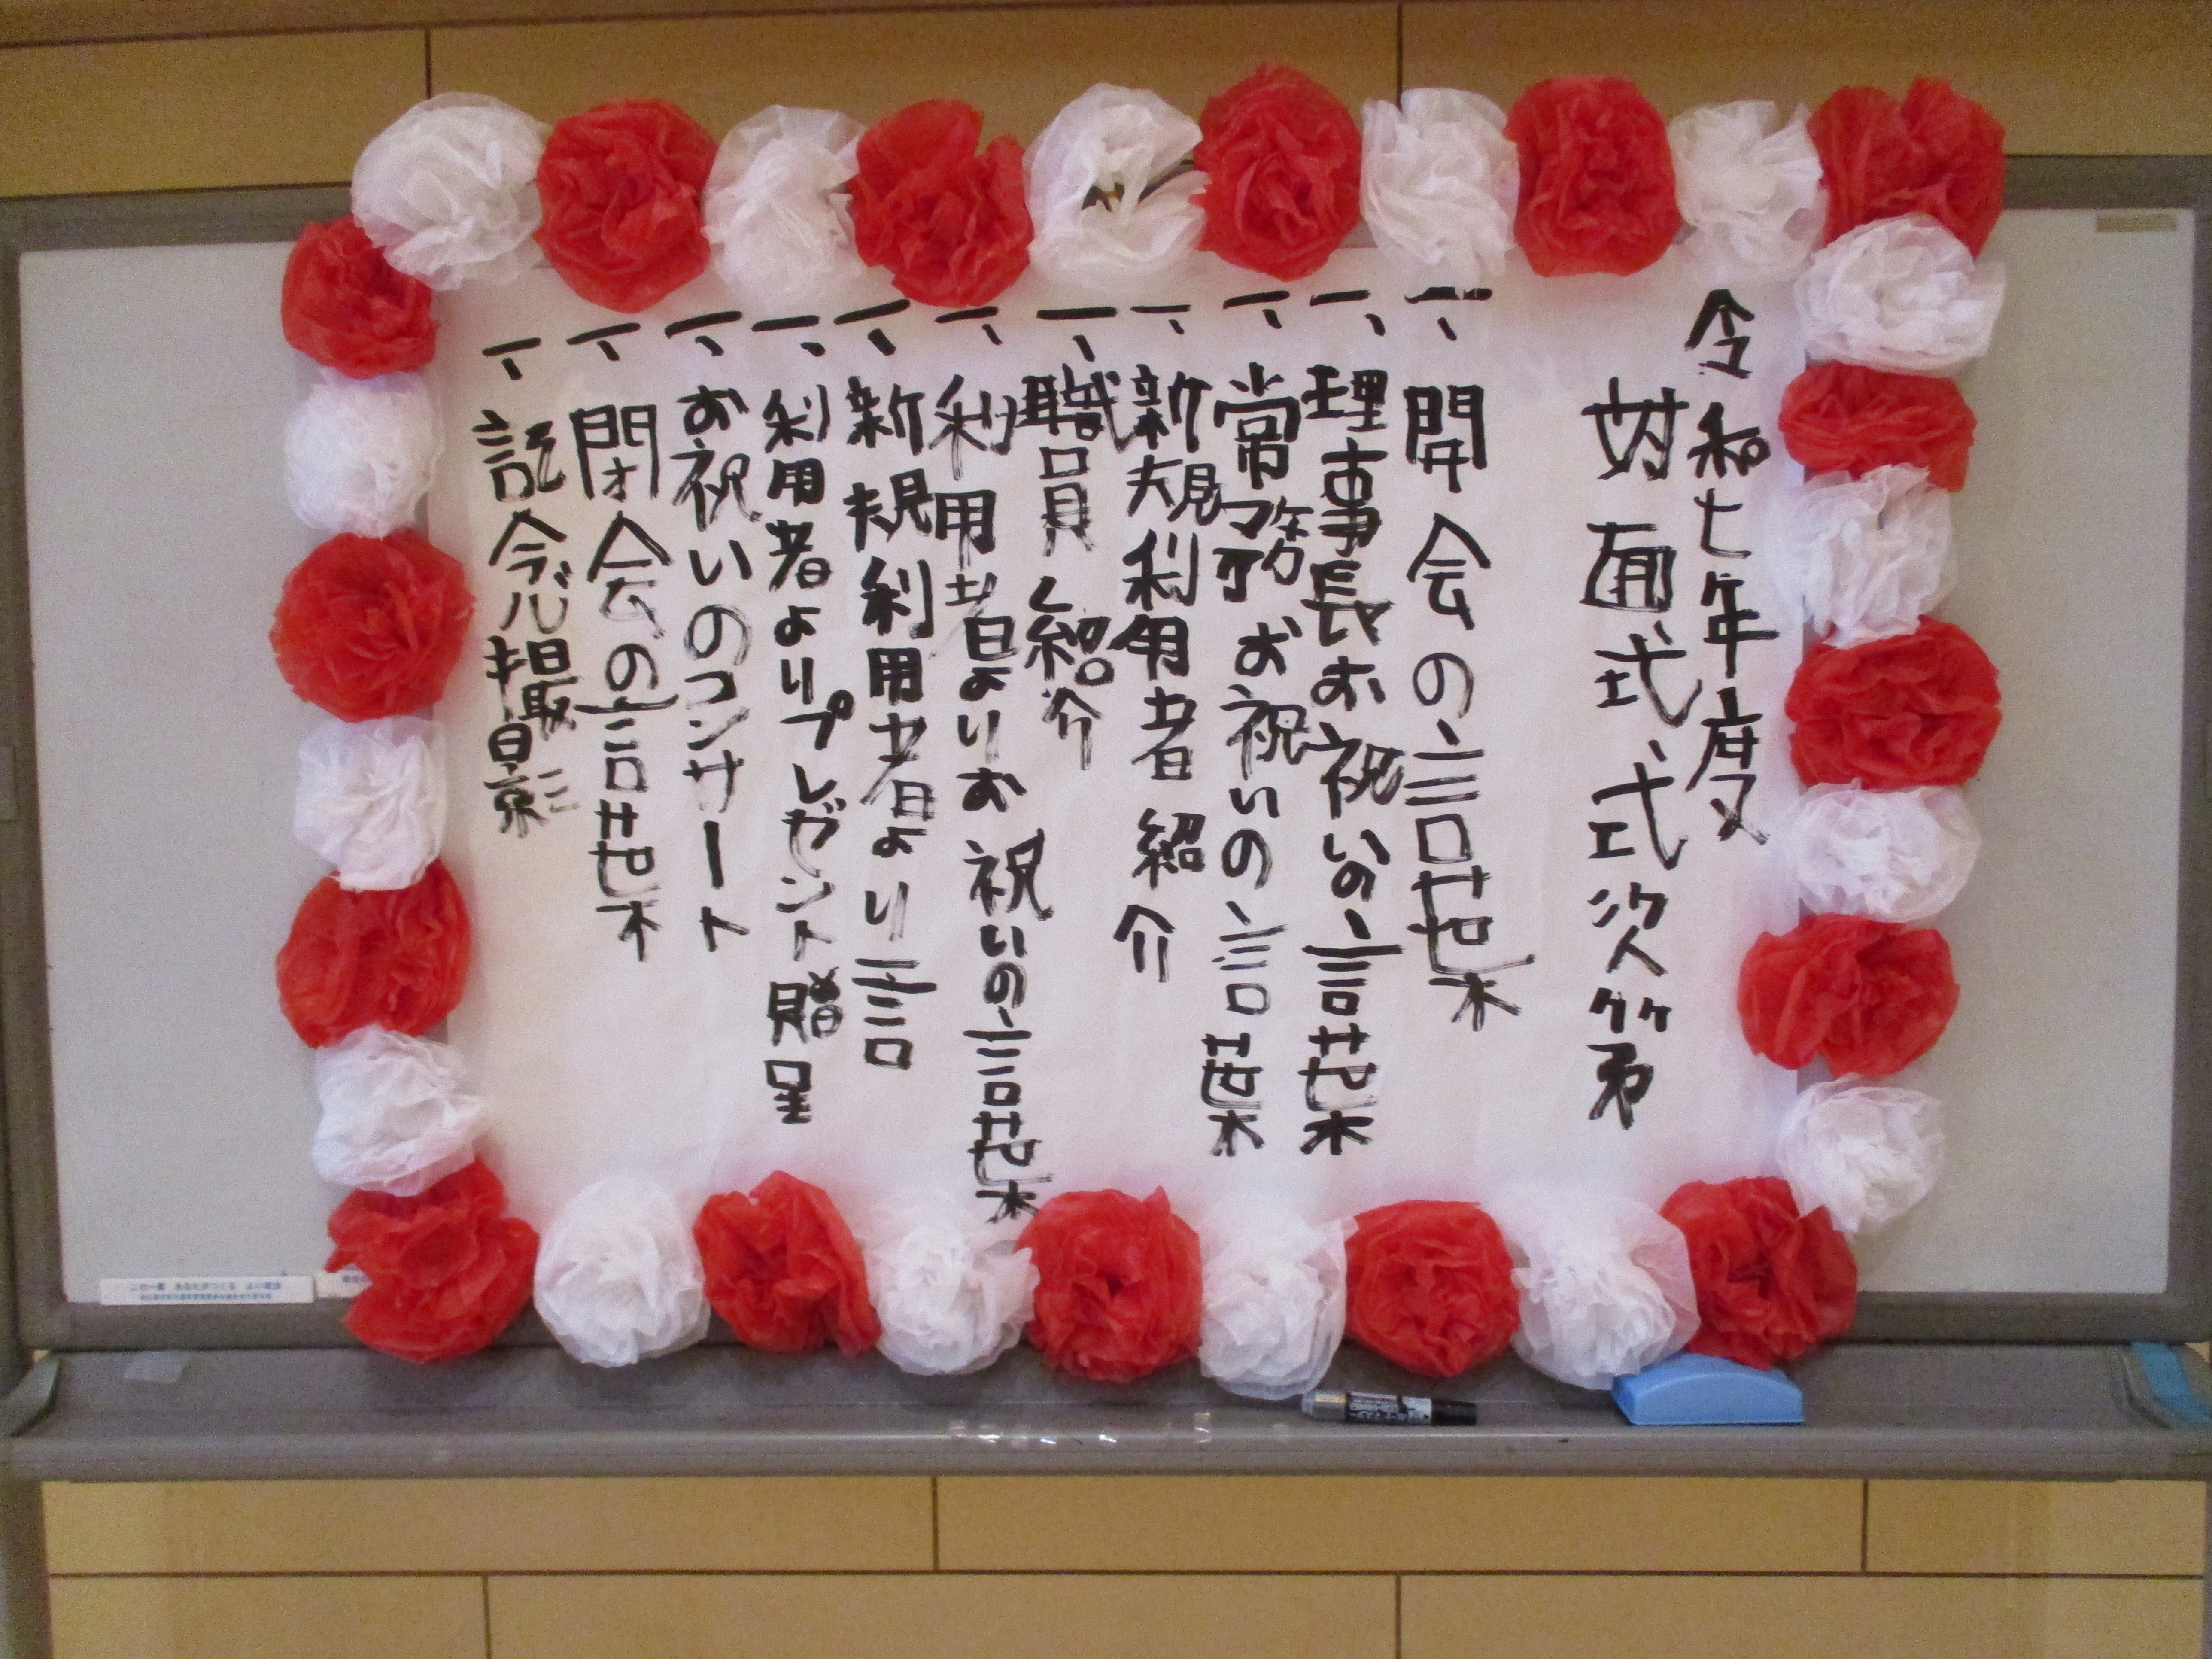 令和七年度
対面式式次第
一、開会の言葉
一、理事長お祝いの言葉
一、常務お祝いの言葉
一、新規利用者紹介
一、職員紹介
一、利用者よりお祝いの言葉
一、新規利用者より一言
一、利用者よりプレゼント贈呈
一、お祝いのコンサート
一、閉会の言葉
一、記念撮影